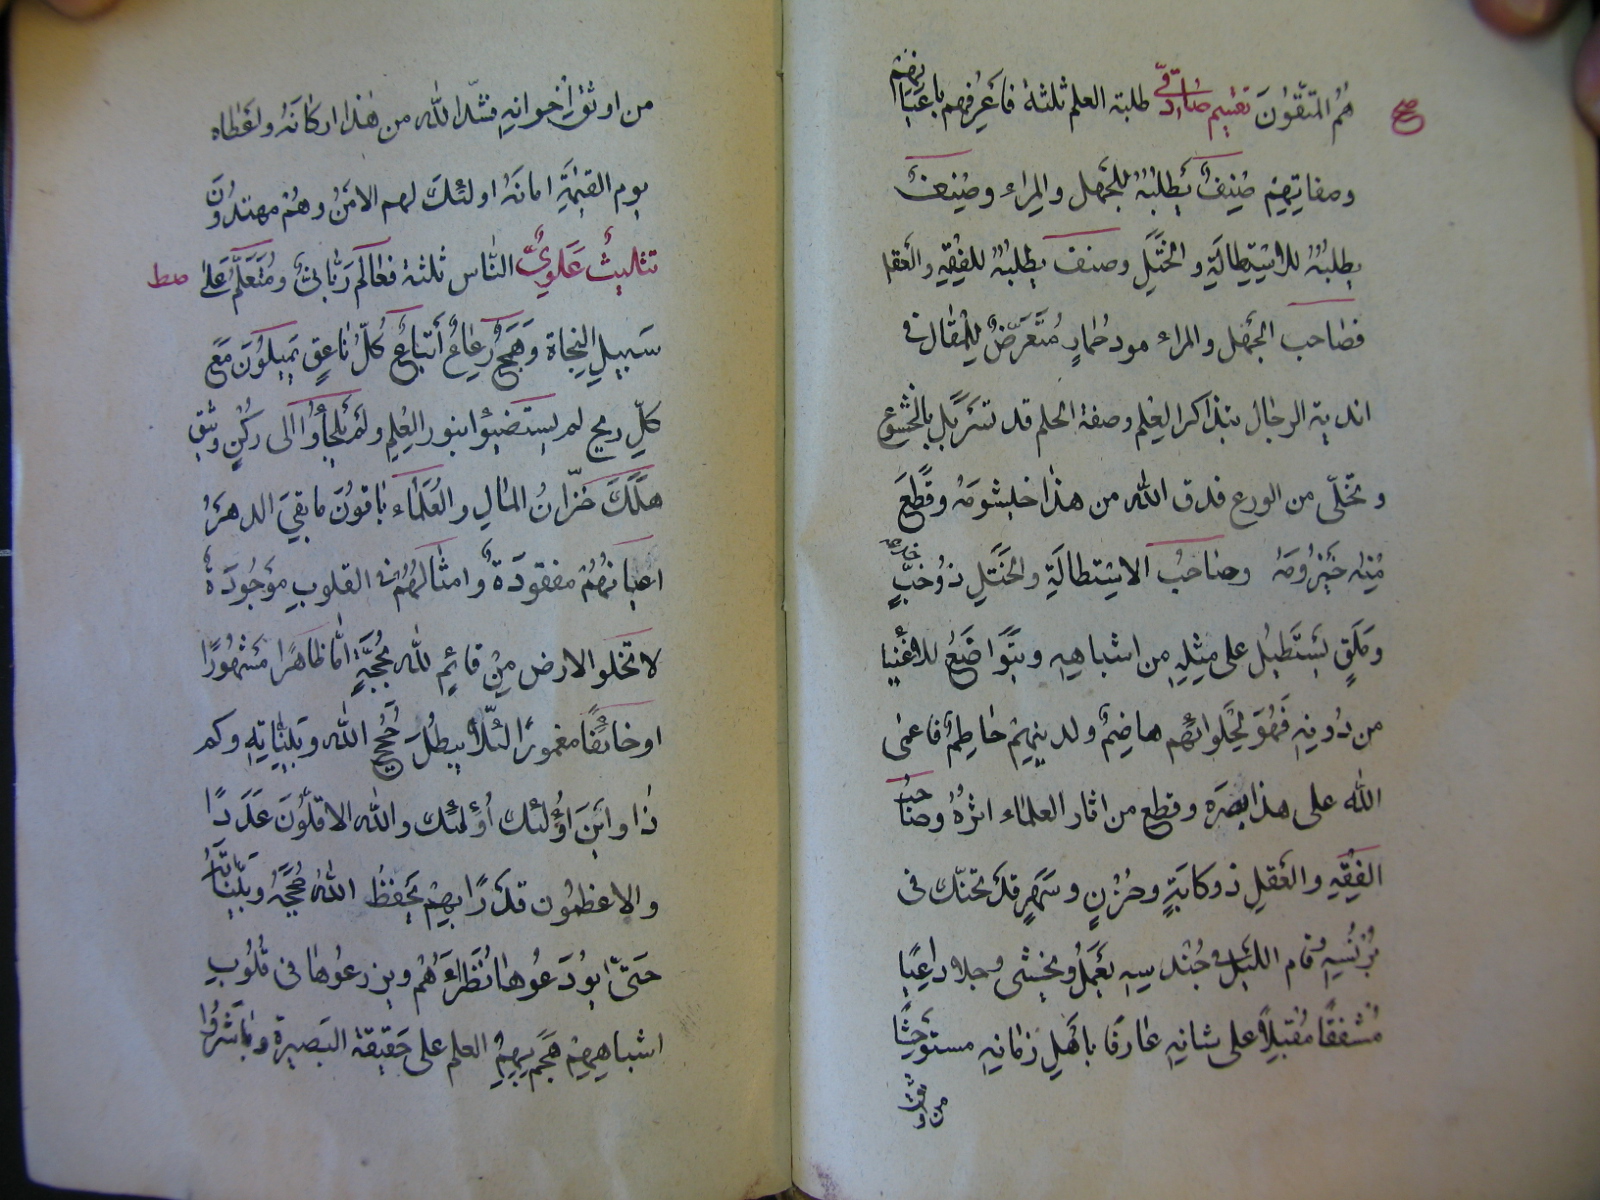 هُمُ المتّقُونَ تقسيم صادقىّ طلبة العلم ثلثة فاعرفهم باعيانهم
وصفاتهم صنف يطلبه للجهل والمراء وصنف
يطلبه للاستطالة والختل وصنف يطلبه للفقه والعقل
فصاحب الجهل والمراء موذ ممار متعرّض للمقال فى
اندية الرجال بتذاكر العلم وصفة الحلم قد تسربل بالخشوع
وتخلّى من الورع فدق الله من هذا خيشومه وقطع
منه حيزومه وصاحب الاستطالة والختل ذو خبّ
وملق يستطيل على مثله من اشباهه ويتواضع للاغنيا
من دونه فهو لحلوائهم هاضم ولدينهم حاطم فاعمى
الله على هذا بصره وقطع من اثار العلماء اثره وصاحب
الفقه والعقل ذو كابة وحزن وسهر قد تحنّك فى
برنسه وقام الليل فى حندسه يعمل ويخشى وجلا داعيًا
مشفقًا مقبلاً على شانه عارفًا باهل زمانه مستوحشًا
من اوثق
من اوثق اخوانه فشدّ الله من هذا اركانه واعطاه
يوم القيمة امانه اولئك لهم الامن وهم مهتدون
تثليث علوىّ الناس ثلثة فعالم ربّانىّ ومتعلّم على
سبيل النجاة وهمج رعاع أتباع كلّ ناعق يميلون مع
كلّ ريح لم يستضيئوا بنور العلم ولم يلجاوا الى ركن وثيق
هلك خزّان المال والعلماء باقون ما بقى الدهر
اعيانهم مفقودة وامثالهم فى القلوب موجودة
لا تخلو الارض من قائم لله بحجّة امّا ظاهرا مشهورًا
او خائفًا مغمورًا لئلّا يبطل حجج الله وبيّناته وكم
ذا واين اولئك أولئك والله الاقلّون عددًا
والاعظمون قدرًا بهم يحفظ الله حججه وبيّناته
حتّى يودعوها نظراءهم ويزرعوها فى قلوب
اشباههم هجم بهم العلم على حقيقة البصيرة وباشروا